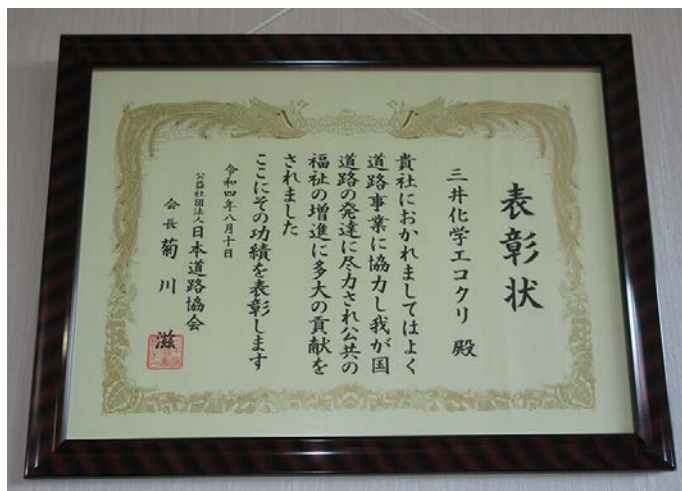 表彰状
三井化学エコクリ 殿
貴社におかれましてはよく
道路事業に協力し我が国
道路の発達に尽力され公共の
福祉の増進に多大の貢献を
されました
ここにその功績を表彰します
令和四年八月十日
公益社団法人日本道路協会
会長 菊川 滋